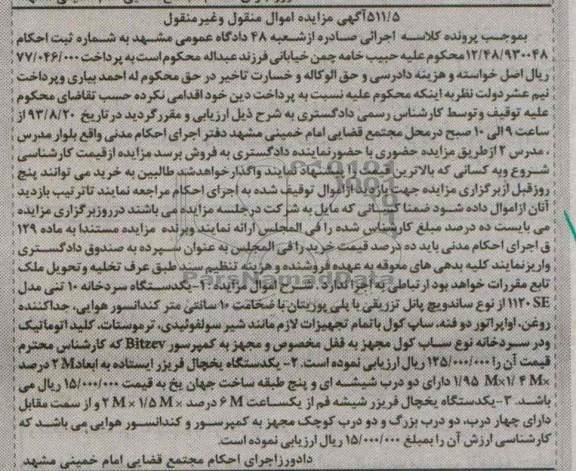 ۵۱۱/۵آگهی مزایده اموال منقول وغیرمنقول
بموجب پرونده کلاسه اجرائی صادره ازشعبه ۴۸ دادگاه عمومی مشهد به شماره ثبت احکام
۱۲/۴۸/۹۳۰۰۴۸محکوم علیه حبیب خامه چمن خیابانی فرزند عبداله محکوم است به پرداخت ۷۷/۰۴۶/۰۰۰
ریال اصل خواسته و هزینه دادرسی و حق الوکاله و خسارت تاخیر در حق محکوم له احمد بیاری وپرداخت
نیم عشر دولت نظربه اینکه محکوم علیه نسبت به پرداخت دین خود اقدامی نکرده حسب تقاضای محکوم
علیه توقیف وتوسط کارشناس رسمی دادگستری به شرح ذیل ارزیابی و مقررگردید درتاریخ ۹۳/۸/۲۰ از
ساعت ۹ الی ۱۰ صبح درمحل مجتمع قضایی امام خمینی مشهد دفتر اجرای احکام مدنی واقع بلوار مدرس
، مدرس ۲ ازطریق مزایده حضوری با حضور نماینده دادگستری به فروش برسد مزایده ازقیمت کارشناسی
شروع وبه کسانی که بالاترین قیمت را پیشنهاد نمایند واگذارخواهدشد طالبین به خرید می توانند پنج
روزقبل ازبرگزاری مزایده جهت بازدید ازاموال توقیف شده به اجرای احکام مراجعه نمایند تاترتیب بازدید
آنان ازاموال داده شود ضمنا کسانی که مایل به شرکت درجلسه مزایده می باشند درروزبرگزاری مزایده
می بایست ده درصد مبلغ کارشناس شده را فی المجلس ارائه نمایند وبرنده مزایده مستندا به ماده ۱۲۹
ق اجرای احکام مدنی باید ده درصد قیمت خرید را فی المجلس به عنوان سپرده به صندوق دادگستری
واریزنمایند کلیه بدهی های معوقه به عهده فروشنده و هزینه تنظیم سند طبق عرف تخلیه وتحویل ملک
تابع مقررات خواهد بود ارتباطی به اجرا ندارد. شرح اموال مزایده: ۱- یکدستگاه سردخانه ۱۰ تنی مدل
۱۱۲۰ SE از نوع ساندویچ پانل تزریقی با پلی یوریتان با ضخامت ۱۰ سانتی متر کندانسور هوایی، جداکننده
روغن، اواپراتور دو فنه، ساپ کول باتمام تجهیزات لازم مانند شیر سولفوئیدی، ترموستات، کلید اتوماتیک
ودر سردخانه نوع ساب کول مجهز به قفل مخصوص و مجهز به کمپرسور Bitzev که کارشناس محترم
قیمت آن را ۱۲۵/۰۰۰/۰۰۰ ریال ارزیابی نموده است. ۲- یکدستگاه یخچال فریزر ایستاده به ابعاد۲M درصد
۱/۹۵ M×۱/ ۴M× دارای دو درب شیشه ای و پنج طبقه ساخت جهان یخ به قیمت ۱۵/۰۰۰/۰۰۰ ریال می
باشد. ۳-یکدستگاه یخچال فریزر شیشه فم از یکساعت ۶M درصد × ۱/۵M × ۲M و از سمت مقابل
دارای چهار درب، دو درب بزرگ و دو درب کوچک مجهز به کمپرسور و کندانسور هوایی می باشد که
کارشناسی ارزش آن را بمبلغ ۱۵/۰۰۰/۰۰۰ ریال ارزیابی نموده است.
دادورزاجرای احکام مجتمع قضایی امام خمینی مشهد